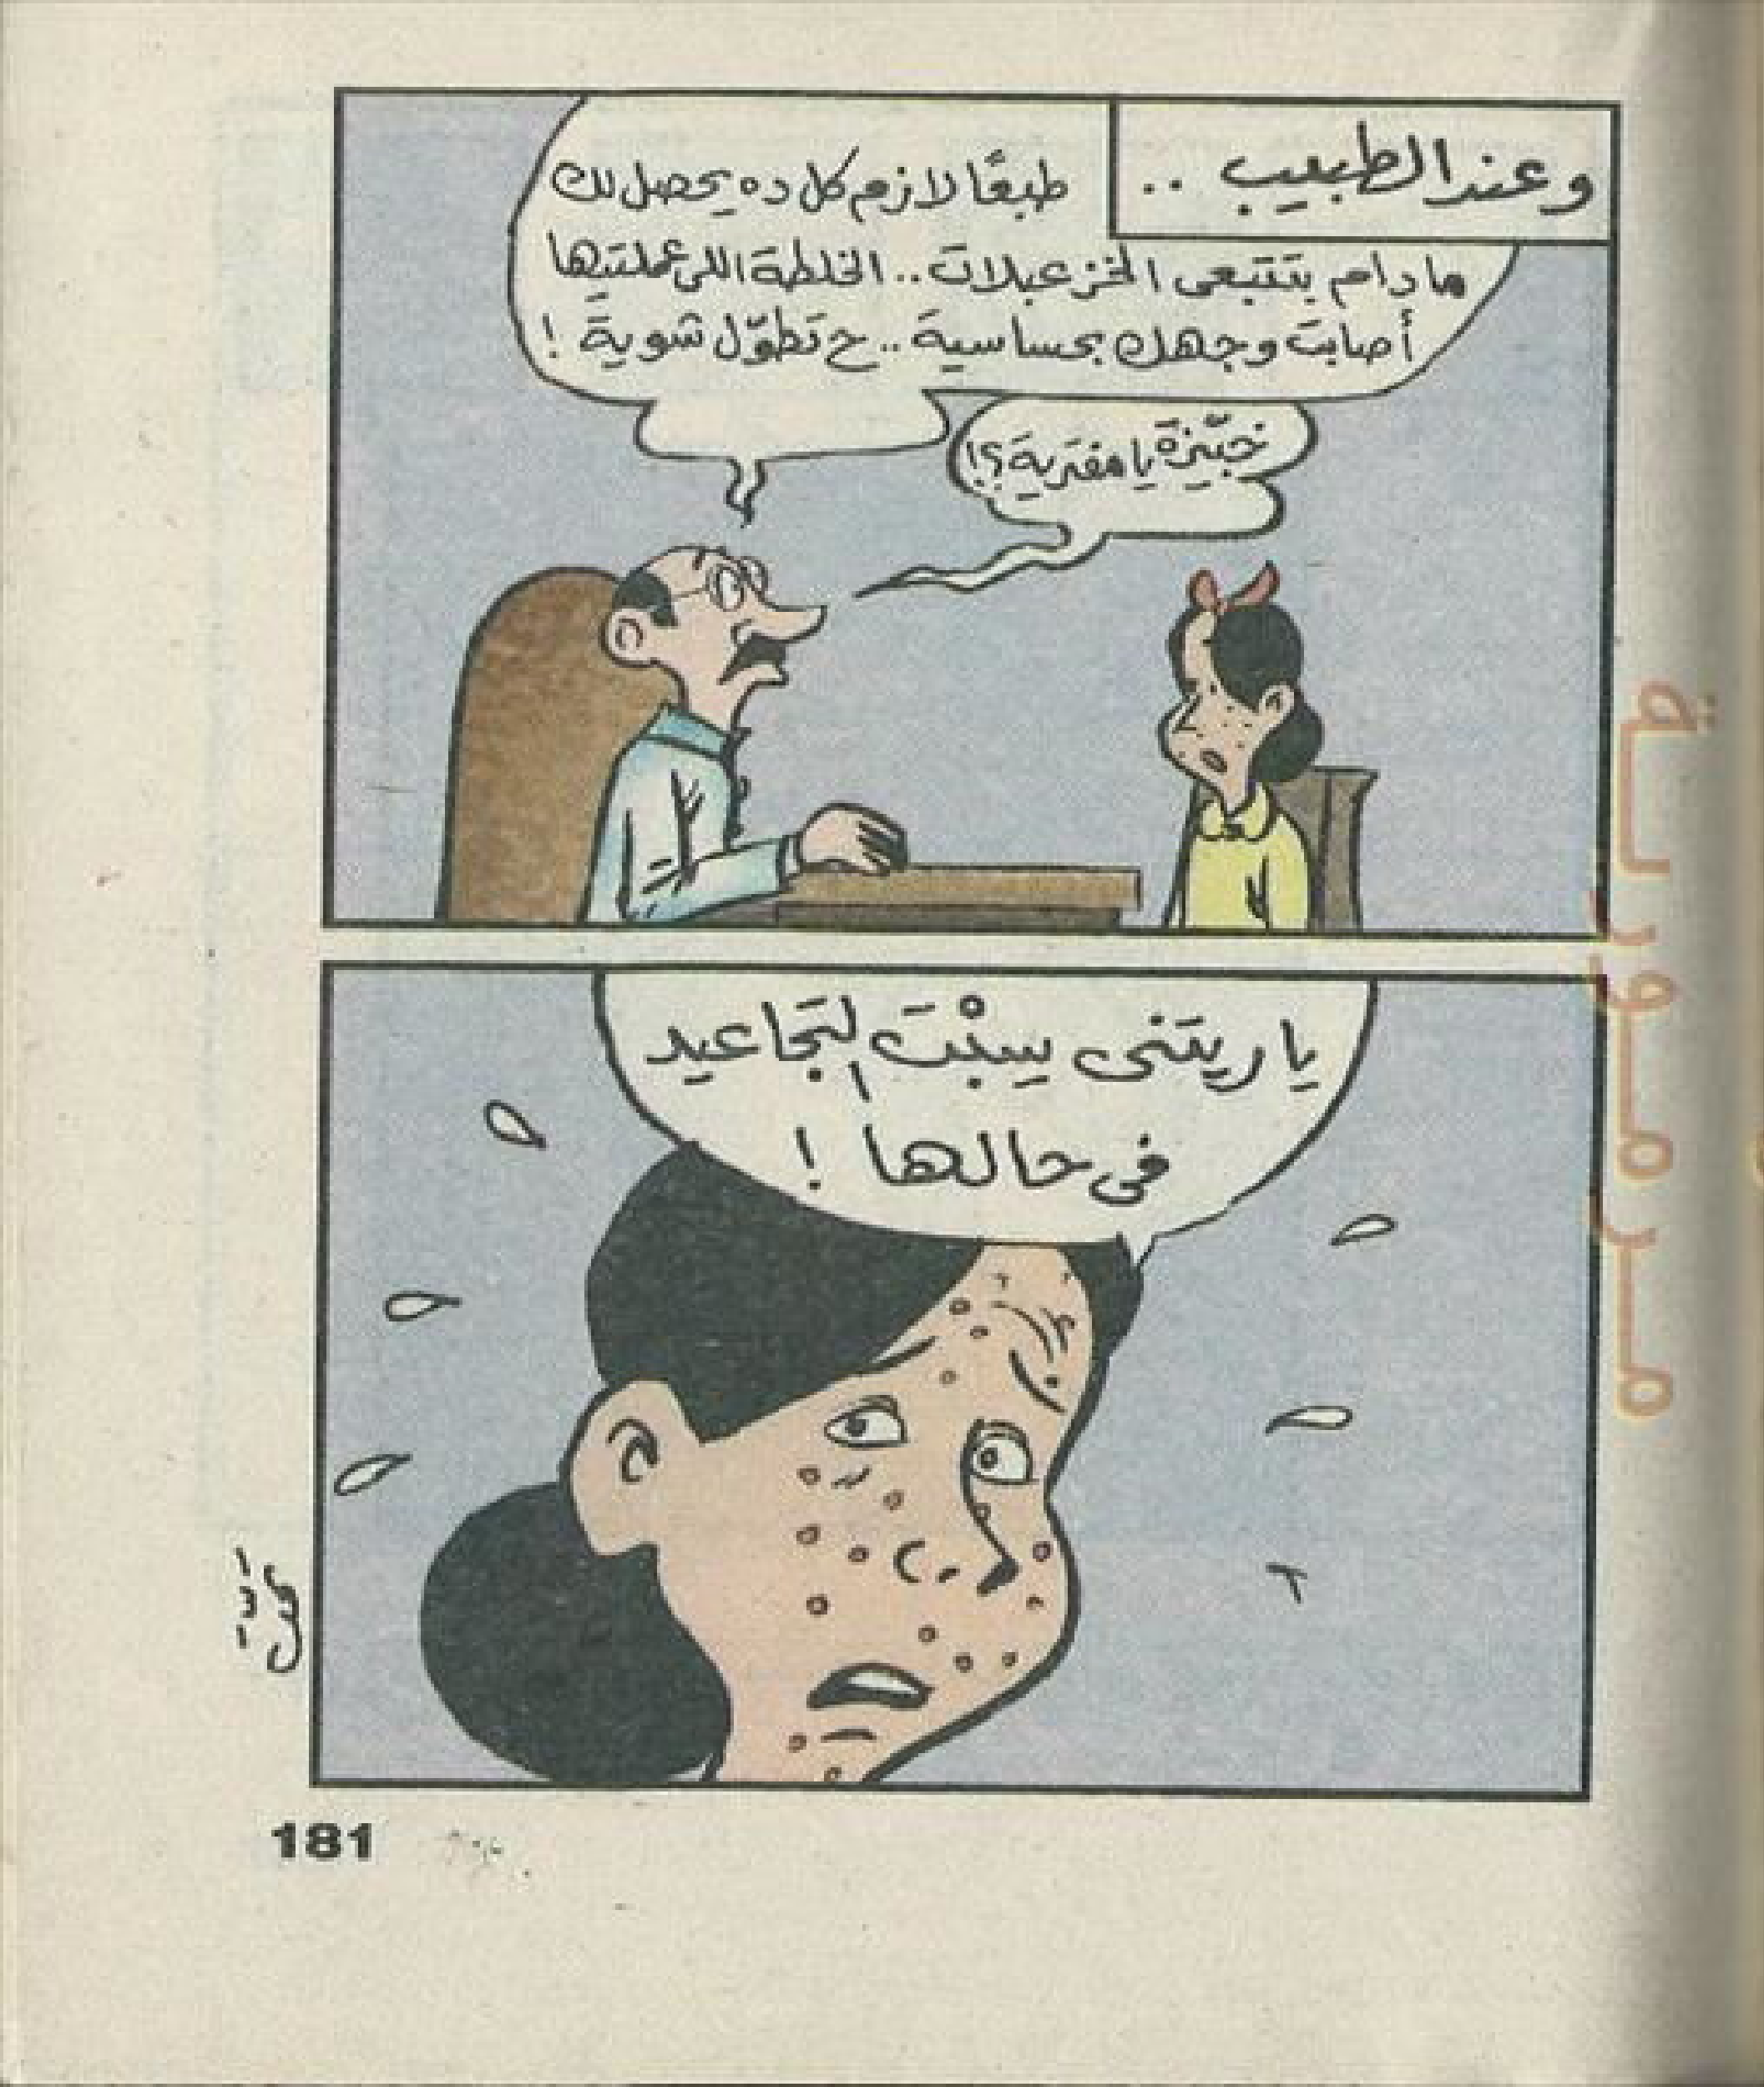 وعند الطبيب ..
طبعًا لازم كل ده يحصل لك
مادام بتتبعى الخزعبلات .. الخلطة اللى عملتيها
أصابت وجهك بحساسية .. ح تطوّل شوية !
خبيّزة يا مفترية ؟!
ياريتنى سِبْت التجاعيد
فى حالها !
مرمورية
181